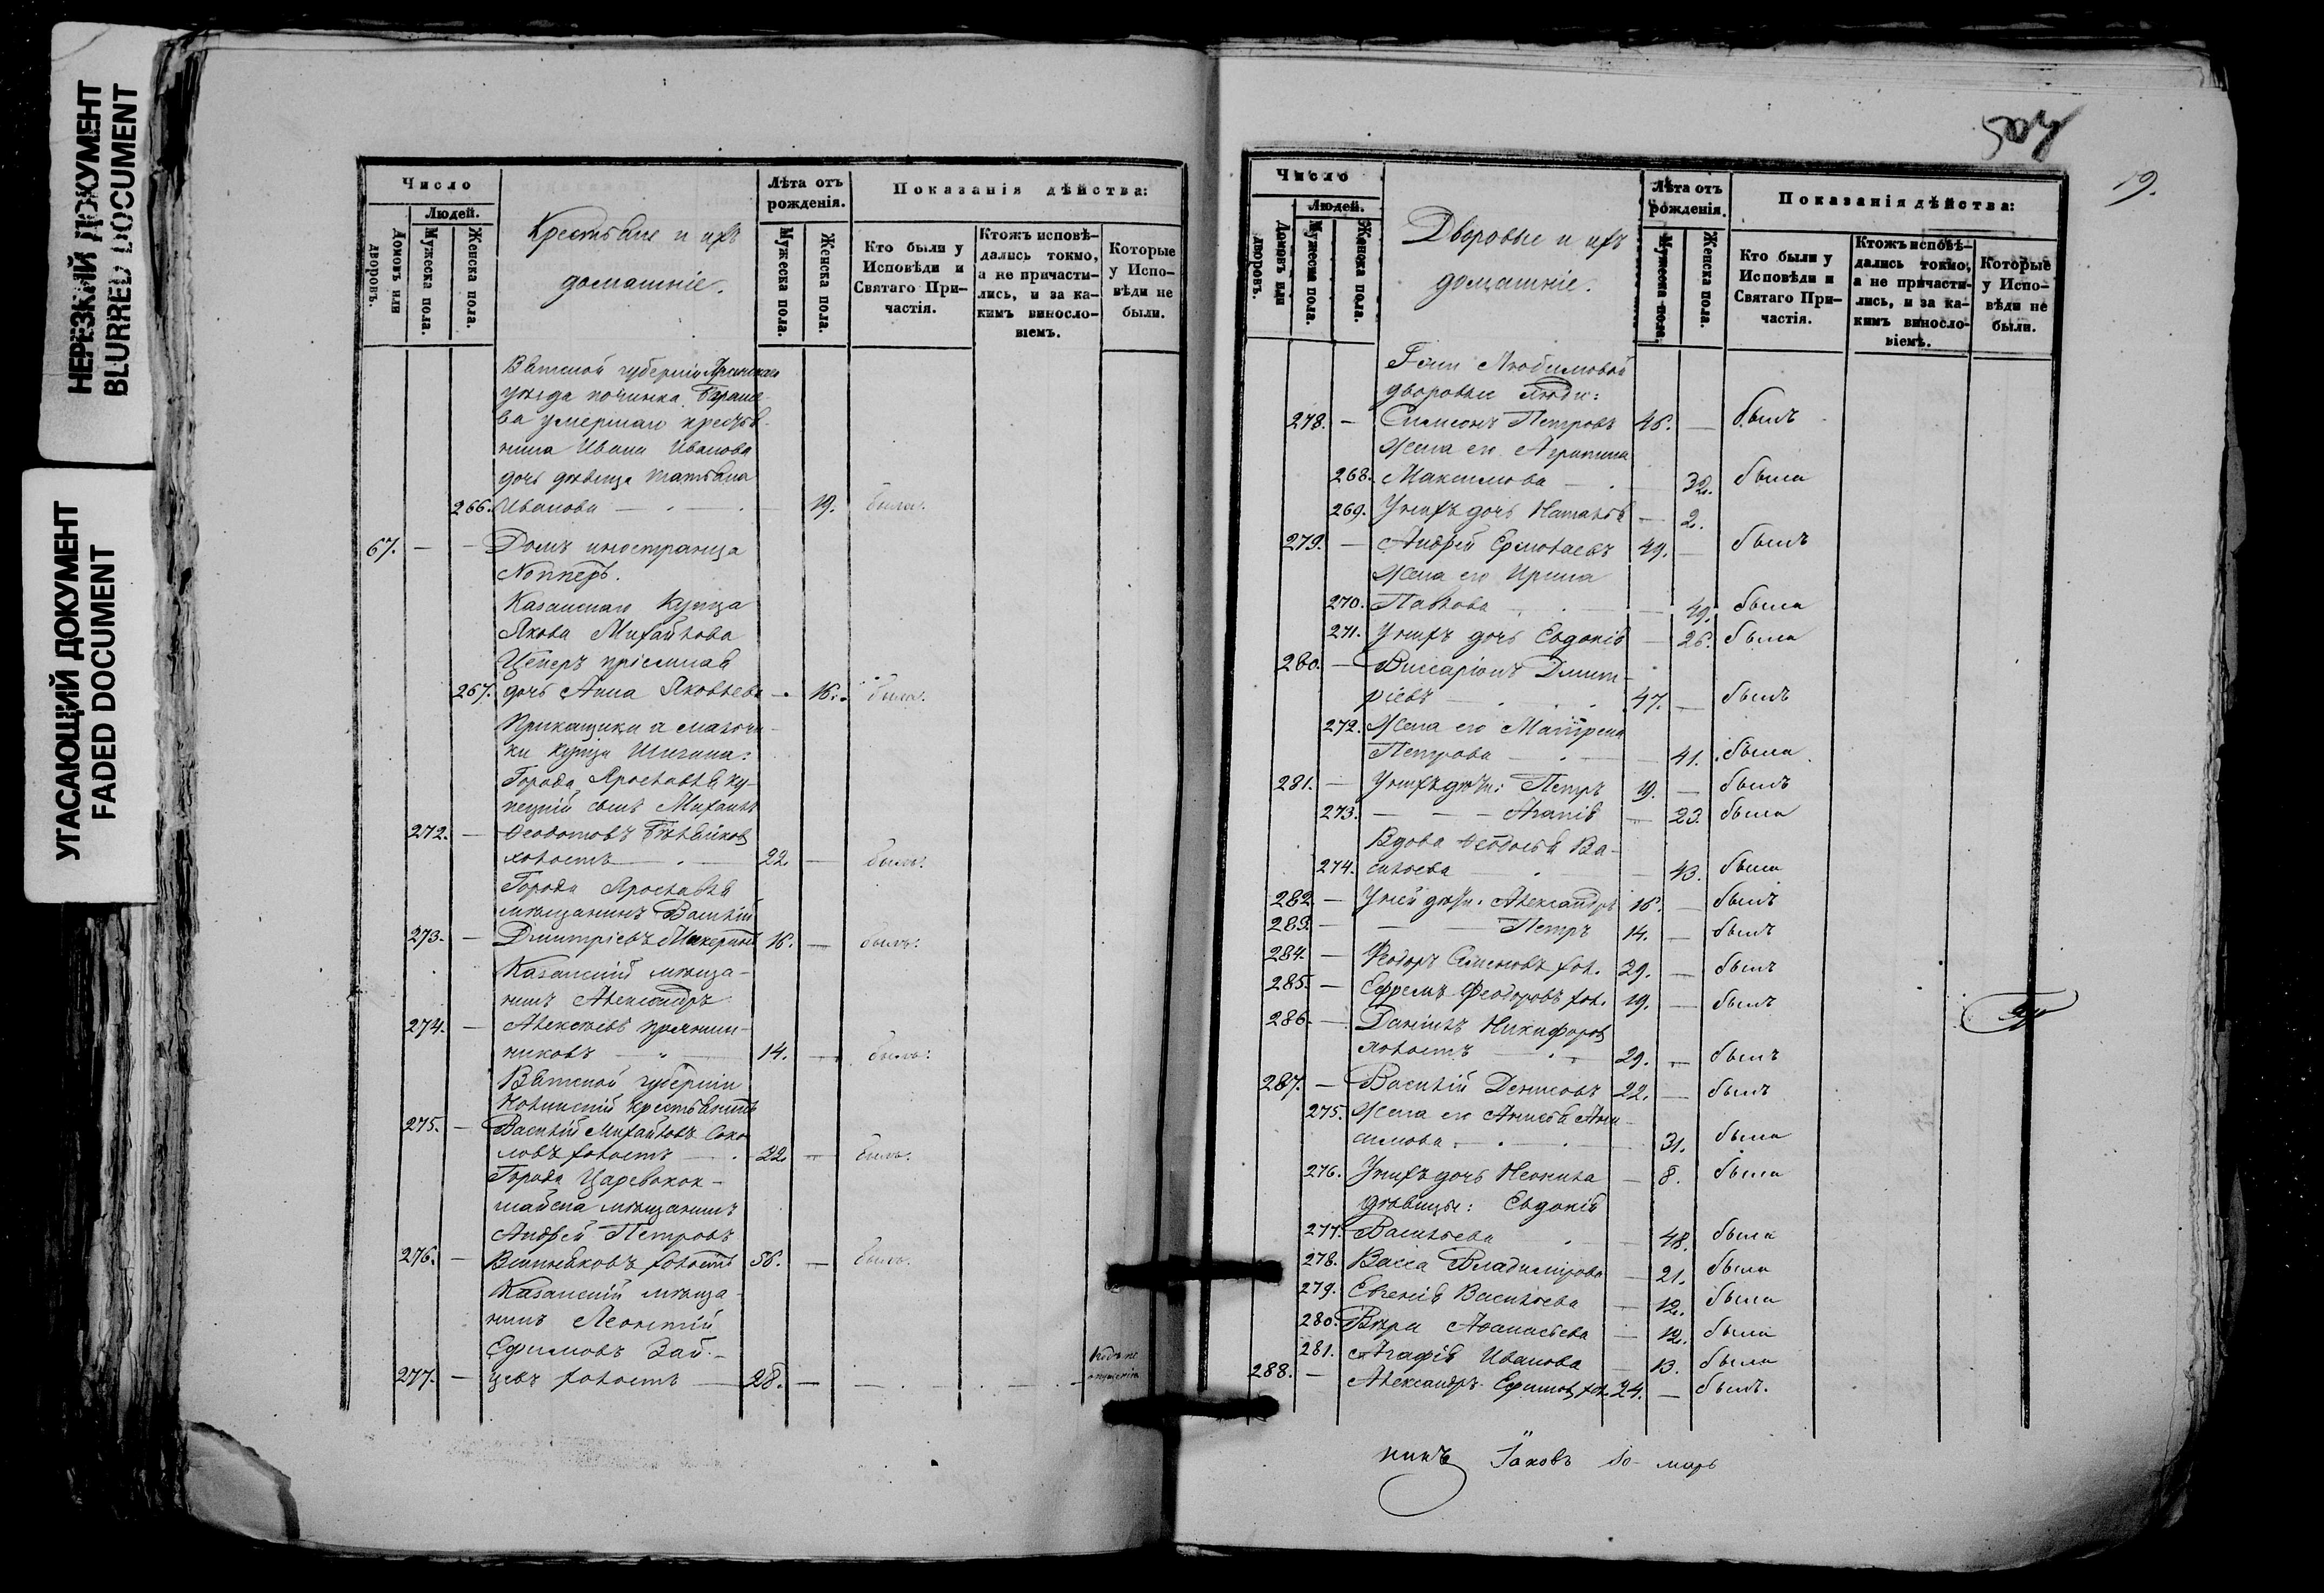 НЕРЕЗКИЙ ДОКУМЕНТ
BLURRED DOCUMENT
УГАСАЮЩИЙ ДОКУМЕНТ
FADED DOCUMENT
Число
Людей.
Домовъ или дворовъ.
Мужеска пола.
Женска пола.
Крестьяне и ихъ
домашніе.
Лѣта отъ
рожденія.
Мужеска пола.
Женска пола.
Показанія дѣйства:
Кто были у
Исповѣди и
Святаго При-
частія.
Ктожъ исповѣ-
дались токмо,
а не причасти-
лись, и за ка-
кимъ виносло-
віемъ.
Которые
у Испо-
вѣди не
были.
Вятской губерніи Яранскаго
уѣзда починка
ва умершаго крестья-
нина Ивана Иванова
дочь дѣвица Татьяна
266. Иванова — 19. была.
67. — — Домъ иностранца
Казанскаго Купца
Якова Михайлова
пріемная
267. дочь Анна Яковлева — 16. была.
Прикащики и мальчи-
ки купца
Города Ярославля ку-
пецкій сынъ Михаилъ
272. — Ѳеодотовъ
холостъ — 22. — былъ.
Города Ярославля
мѣщанинъ Василій
273. — Дмитріевъ 16. — былъ.
Казанскій мѣща-
нинъ Александръ
274. — Алексѣевъ Пряниш-
никовъ — 14. — былъ.
Вятской губерніи
Нолинскій крестьянинъ
275. — Василій Михайловъ Соко-
ловъ холостъ — 22. — былъ.
Города Царевокок-
шайска мѣщанинъ
Андрей Петровъ
276. — Вишняковъ холостъ 56. — былъ.
Казанскій мѣща-
нинъ Леонтій
Ефимовъ Зай-
277. — цевъ холостъ — 28. — —
19.
Число
Людей.
Домовъ или дворовъ.
Мужеска пола.
Женска пола.
Дворовые и ихъ
домашніе.
Лѣта отъ
рожденія.
Мужеска пола.
Женска пола.
Показанія дѣйства:
Кто были у
Исповѣди и
Святаго При-
частія.
Ктожъ исповѣ-
дались токмо,
а не причасти-
лись, и за ка-
кимъ виносло-
віемъ.
Которые
у Испо-
вѣди не
были.
Г-жи Любимовой
дворовые люди:
278. — Симеонъ Петровъ 46. — былъ
Жена его Агрипина
268. Максимова — 32. была
269. У нихъ дочь Наталья — 2.
279. — Андрей Ермолаевъ 49. — былъ
Жена его Ирина
270. Павлова — 49. была
271. У нихъ дочь Евдокія — 26. была
280. — Виссаріонъ Дмит-
ріевъ — 47. — былъ
272. Жена его Матрена
Петрова — 41. была
281. — У нихъ дѣти: Петръ 19. — былъ
273. — — — Агапія — 23. была
Вдова Ѳеодосья Ва-
274. сильева — 43. была
282. — У ней дѣти: Александръ 16. — былъ
283. — — — Петръ 14. — былъ
284. — Ѳеодоръ Семеновъ хол. 29. — былъ
285. — Ефремъ Ѳеодоровъ хол. 19. — былъ
286. — Даніилъ Никифоровъ
холостъ — 29. — былъ
287. — Василій Денисовъ 22. — былъ
275. Жена его Анисья Ани-
симова — 31. была
276. У нихъ дочь Неонила — 8. была
дѣвицы: Евдокія
277. Васильева — 48. была
278. Васса Владимірова — 21. была
279. Евгенія Васильева — 12. была
280. Вѣра Аѳанасьева — 12. была
281. Агафія Иванова — 13. была
288. — Александръ Ефимовъ хол. 24. — былъ.
никъ Іаковъ